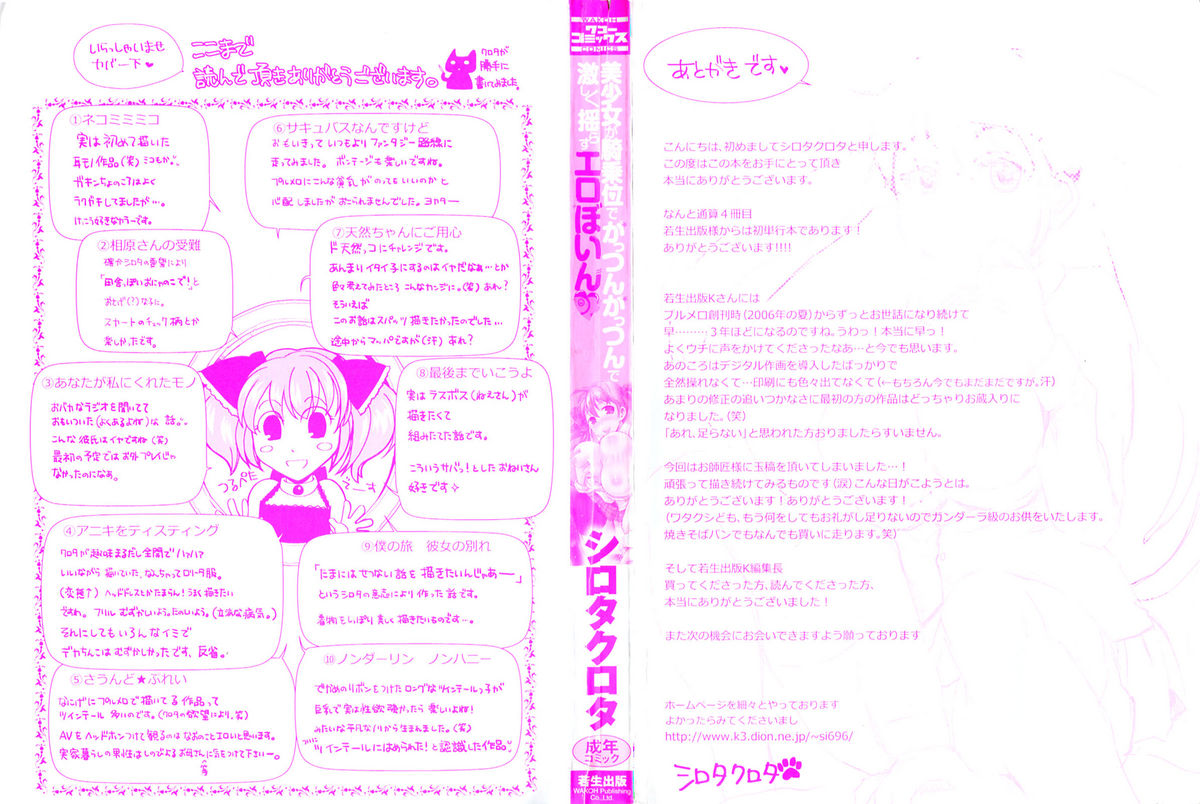 いらっしゃいませ
カバー下♥
ここまで
読んで頂きありがとうございます。
クロタが
勝手に
書いてみました。
①ネコミミミコ
実は初めて描いた
耳モノ作品(笑)ミコもか。
ガキンちょのころはよく
ラクガキしてましたが…。
けっこう好きなカラーです。
②相原さんの受難
確かシロタの要望により
「田舎っぽいおにゃのこで!」と
スカートのチェック柄とか
楽しかったです。
③あなたが私にくれたモノ
おバカなラジオを聞いてて
おもいついた(よくあるよね)な話。
こんな彼氏はイヤですね(笑)
最初の予定ではお外プレイじゃ
なかったのになぁ。
④アニキをティスティング
クロタが趣味まるだし全開でハァハァ
いいながら描いていた、なんちゃってロリータ服。
(変態↑)ヘッドドレスとかたまらん!うまく描きたい
ですわ。フリルむずかしいよう。たのしいよう。(立派な病気。)
それにしてもいろんなイミで
デカちんこはむずかしかったです、反省。
⑤さうんど★ぷれい
なにげにプルメロで描いてる作品って
ツインテール多いのです。(クロタの欲望により。笑)
AVをヘッドホンつけて観るのはなおのことエロいと思います。
実家暮らしの男性はしのびよるお母さんに気をつけて下さいー。
⑥サキュバスなんですけど
おもいきっていつもよりファンタジー路線に
走ってみました。ボンテージも楽しいですね。
プルメロにこんな貧乳がのってもいいのかと
心配しましたがおこられませんでした。ヨカター
⑦天然ちゃんにご用心
ド天然っコにチャレンジです。
あんまりイタイ子にするのはイヤだなぁ…とか
色々考えてみたところこんなカンジに。(笑)あれ?
そういえば
このお話はスパッツ描きたかったのでした…
途中からマッパですが(汗)あれ?
⑧最後までいこうよ
実はラスボス(ねえさん)が
描きたくて
組みたてた話です。
こういうサバッ!としたおねいさん
好きです✧
つるぺた
⑨僕の旅 彼女の別れ
「たまにはせつない話を描きたいんじゃあー」
というシロタの意志により作った話です。
着物をしぽり美しく描きたいものです…。
⑩ノンダーリン ノンハニー
でかめのリボンをつけたロングなツインテールっ子が
巨乳で実は性欲強かったら楽しいよね!
みたいな平凡なノリから生まれました。(笑)
ツインテールにはめられた!と認識した作品。
WAKOH
ワコー
コミックス
COMICS
美少女が股集立でがっつんがっつんで
激しく揺らす
エロぼいん
シロタクロタ
成年
コミック
若生出版
WAKOH Publishing
Co.,Ltd.
あとがきです♥
こんにちは、初めましてシロタクロタと申します。
この度はこの本をお手にとって頂き
本当にありがとうございます。
なんと通算4冊目
若生出版様からは初単行本であります!
ありがとうございます!!!!
若生出版Kさんには
プルメロ創刊時(2006年の夏)からずっとお世話になり続けて
早………3年ほどになるのですね。うわっ!本当に早っ!
よくウチに声をかけてくださったなあ…と今でも思います。
あのころはデジタル作画を導入したばっかりで
全然操れなくて…印刷にも色々出てなくて(←もちろん今でもまだまだですが。汗)
あまりの修正の追いつかなさに最初の方の作品はどっちゃりお蔵入りに
なりました。(笑)
「あれ、足らない」と思われた方おりましたらすいません。
今回はお師匠様に玉稿を頂いてしまいました…!
頑張って描き続けてみるものです(涙)こんな日がこようとは。
ありがとうございます!ありがとうございます!
(ワタクシども、もう何をしてもお礼がし足りないのでガンダーラ級のお供をいたします。
焼きそばパンでもなんでも買いに走ります。笑)
そして若生出版K編集長
買ってくださった方、読んでくださった方、
本当にありがとうございました!
また次の機会にお会いできますよう願っております
ホームページを細々とやっております
よかったらみてくださいまし
http://www.k3.dion.ne.jp/~si696/
シロタクロタ